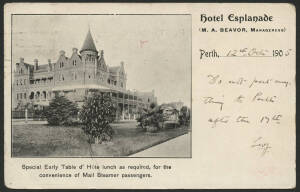 Hotel Esplanade
(M. A. BEAVOR, MANAGERESS)
Perth, 12th Oct 1905
Do not post any
thing to Perth
after the 19th
Special Early Table d' Hote lunch as required, for the
convenience of Mail Steamer passengers.